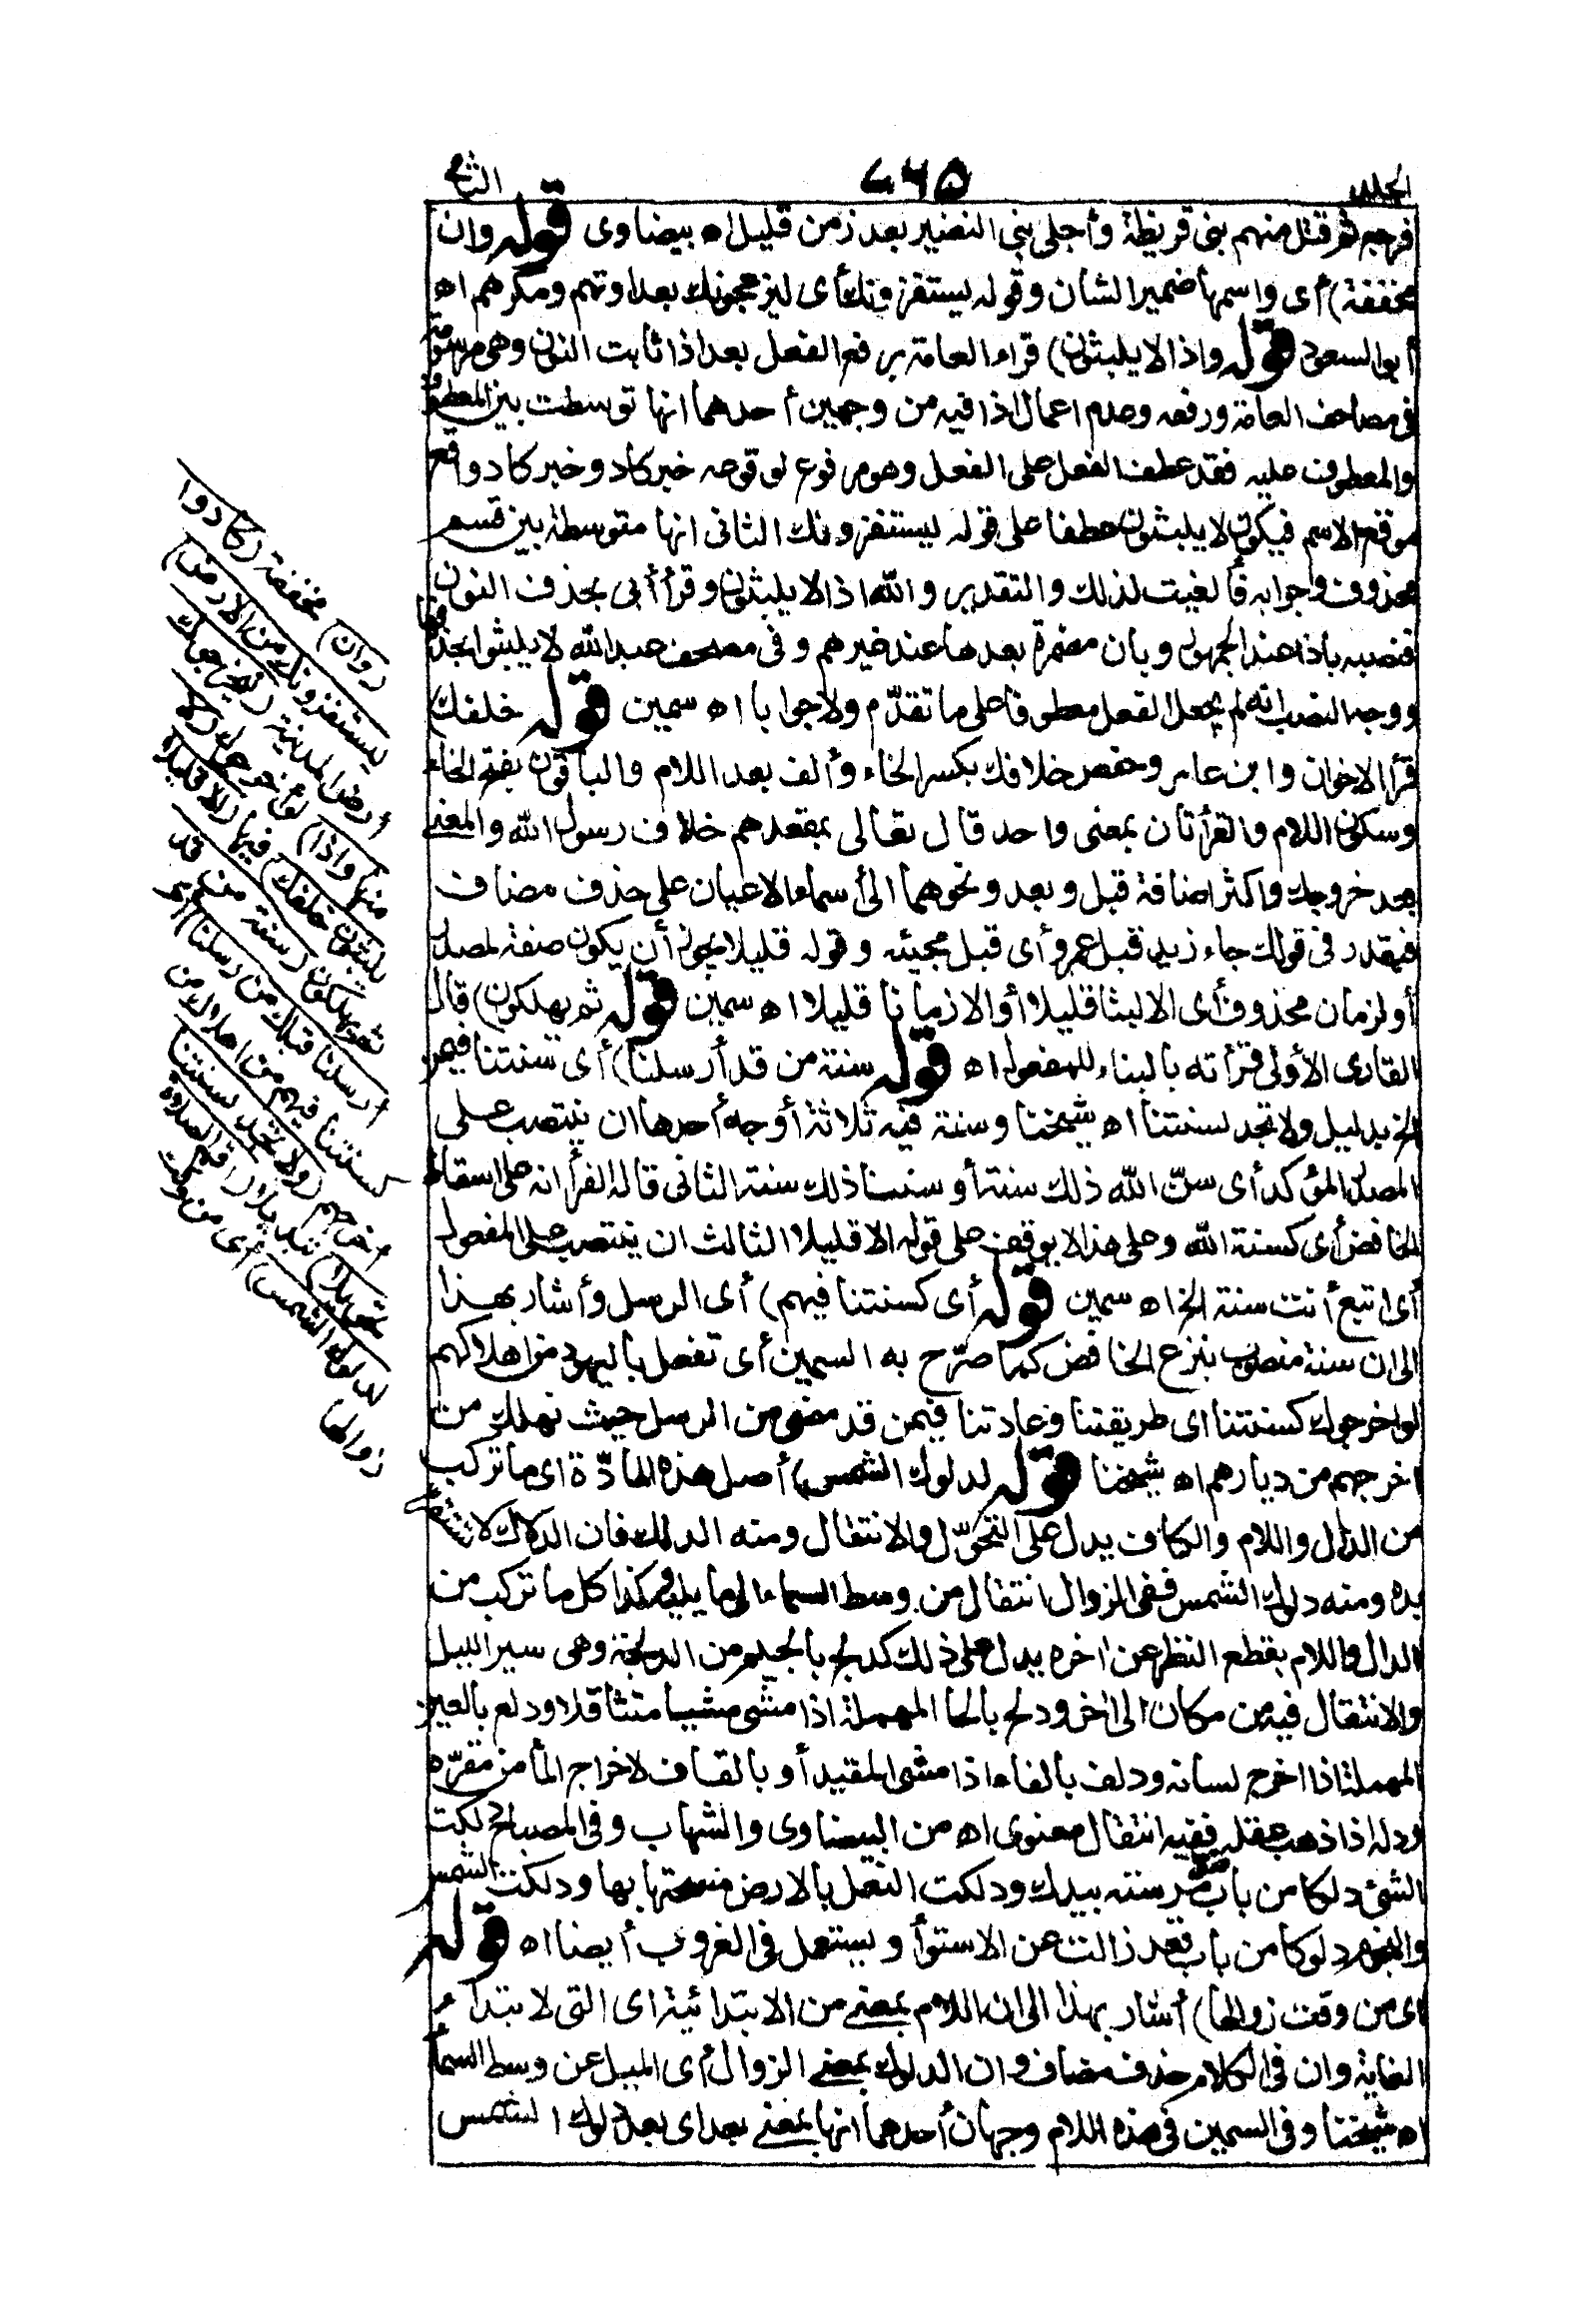 الجلد
٦٦٥
الثانى
فرجع ثم قتل منهم بنى قريظة وأجلى بنى النضير بعد زمن قليل اه بيضاوى قوله وان
مخففة) أى واسمها ضمير الشان وقوله ليستفزونك أى ليزعجونك بعداوتهم ومكرهم اه
أبو السعود قوله واذا لا يلبثون) قراءة العامة برفع الفعل بعد اذا ثابت النون وهى مرسومة
فى مصاحف العامة ورفعه وعدم اعمال اذا فيه من وجهين أحدهما انها توسطت بين المعطوف
والمعطوف عليه فقد عطف الفعل على الفعل وهو مرفوع لوقوعه خبر كاد وخبر كاد واقع
موقع الاسم فيكون لا يلبثون عطفا على قوله ليستفزونك الثانى انها متوسطة بين قسم
محذوف وجوابه فألغيت لذلك والتقدير والله اذا لا يلبثون وقرأ أبى بحذف النون
فنصبه باذا عند الجمهور وبان مضمرة بعدها عند غيرهم وفى مصحف عبد الله لا يلبثوا بحذفها
ووجه النصب انه لم يجعل الفعل معطوفا على ما تقدّم ولا جوابا اه سمين قوله خلفك)
قرأ الاخوان وابن عامر وحفص خلافك بكسر الخاء وألف بعد اللام والباقون بفتح الخاء
وسكون اللام والقرأتان بمعنى واحد قال تعالى بمقعدهم خلاف رسول الله والمعنى
بعد خروجك وأكثر اضافة قبل وبعد ونحوهما الى أسماء الاعيان على حذف مضاف
فيقدر فى قولك جاء زيد قبل عمرو أى قبل مجيئه وقوله قليلا يجوز أن يكون صفة لمصدر
أو لزمان محذوف أى الا لبثا قليلا أو الا زمانا قليلا اه سمين قوله ثم يهلكون) قال
القارى الأولى قرأته بالبناء للمفعول اه قوله سنة من قد أرسلنا) أى سنتنا فيمن
الخ بدليل ولا تجد لسنتنا اه شيخنا وسنة فيه ثلاثة أوجه أحدها ان ينتصب على
المصدر المؤكد أى سنّ الله ذلك سنة أو سننا ذلك سنة الثانى قاله الفرأ انه على اسقاط
الخافض أى كسنة الله وعلى هذا لا يوقف على قوله الا قليلا الثالث ان ينتصب على المفعول
أى اتبع أنت سنة الخ اه سمين قوله أى كسنتنا فيهم) أى الرسل وأشار بهذا
الى ان سنة منصوب بنزع الخافض كما صرّح به السمين أى تفعل باليهود من اهلاكهم
لو اخرجوك كسنتنا اى طريقتنا وعادتنا فيمن قد مضى من الرسل حيث نهلك من
اخرجهم من ديارهم اه شيخنا قوله لدلوك الشمس) أصل هذه المادّة اى ما تركب
من الدال واللام والكاف يدل على التحوّل والانتقال ومنه الدلك فان الدلاك لا تستقر
يده ومنه دلوك الشمس ففى الزوال انتقال من وسط السماء الى ما يليه وكذا كل ما تركب من
الدال واللام بقطع النظر عن اخره يدل على ذلك كدلج بالجيم من الدلجة وهى سير الليل
والانتقال فيه من مكان الى اخر ودلح بالحا المهملة اذا مشى مشيا متثاقلا ودلع بالعين
المهملة اذا اخرج لسانه ودلف بالفاء اذا مشى المقيد أو بالقاف لاخراج المأ من مقرّه
ودله اذا ذهب عقله ففيه انتقال معنوى اه من البيضاوى والشهاب وفى المصباح دلكت
الشئ دلكا من باب مرسته بيدك ودلكت النعل بالارض مسحتها بها ودلكت الشمس
والنجوم دلوكا من باب قعد زالت عن الاستوأ ويستعمل فى الغروب أيضا اه قوله
اى من وقت زوالها) أشار بهذا الى ان اللام بمعنى من الابتدائية اى التى لابتدأ
الغاية وان فى الكلام حذف مضاف وان الدلوك بمعنى الزوال أى الميل عن وسط السمأ
اه شيخنا وفى السمين فى هذه اللام وجهان أحدهما انها بمعنى بعد اى بعد دلوك الشمس
(وان) مخففة (كادوا
ليستفزونك من الارض)
أرض المدينة (ليخرجوك
منها واذا) لو أخرجوك (لا
يلبثون خلفك) فيها (الا قليلا)
ثم يهلكون (سنة من قد
أرسلنا قبلك من رسلنا) أى
كسنتنا فيهم من اهلاك من
أخرجهم (ولا تجد لسنتنا
تحويلا) تبديلا (اقم الصلاة
لدلوك الشمس) أى من وقت
زوالها